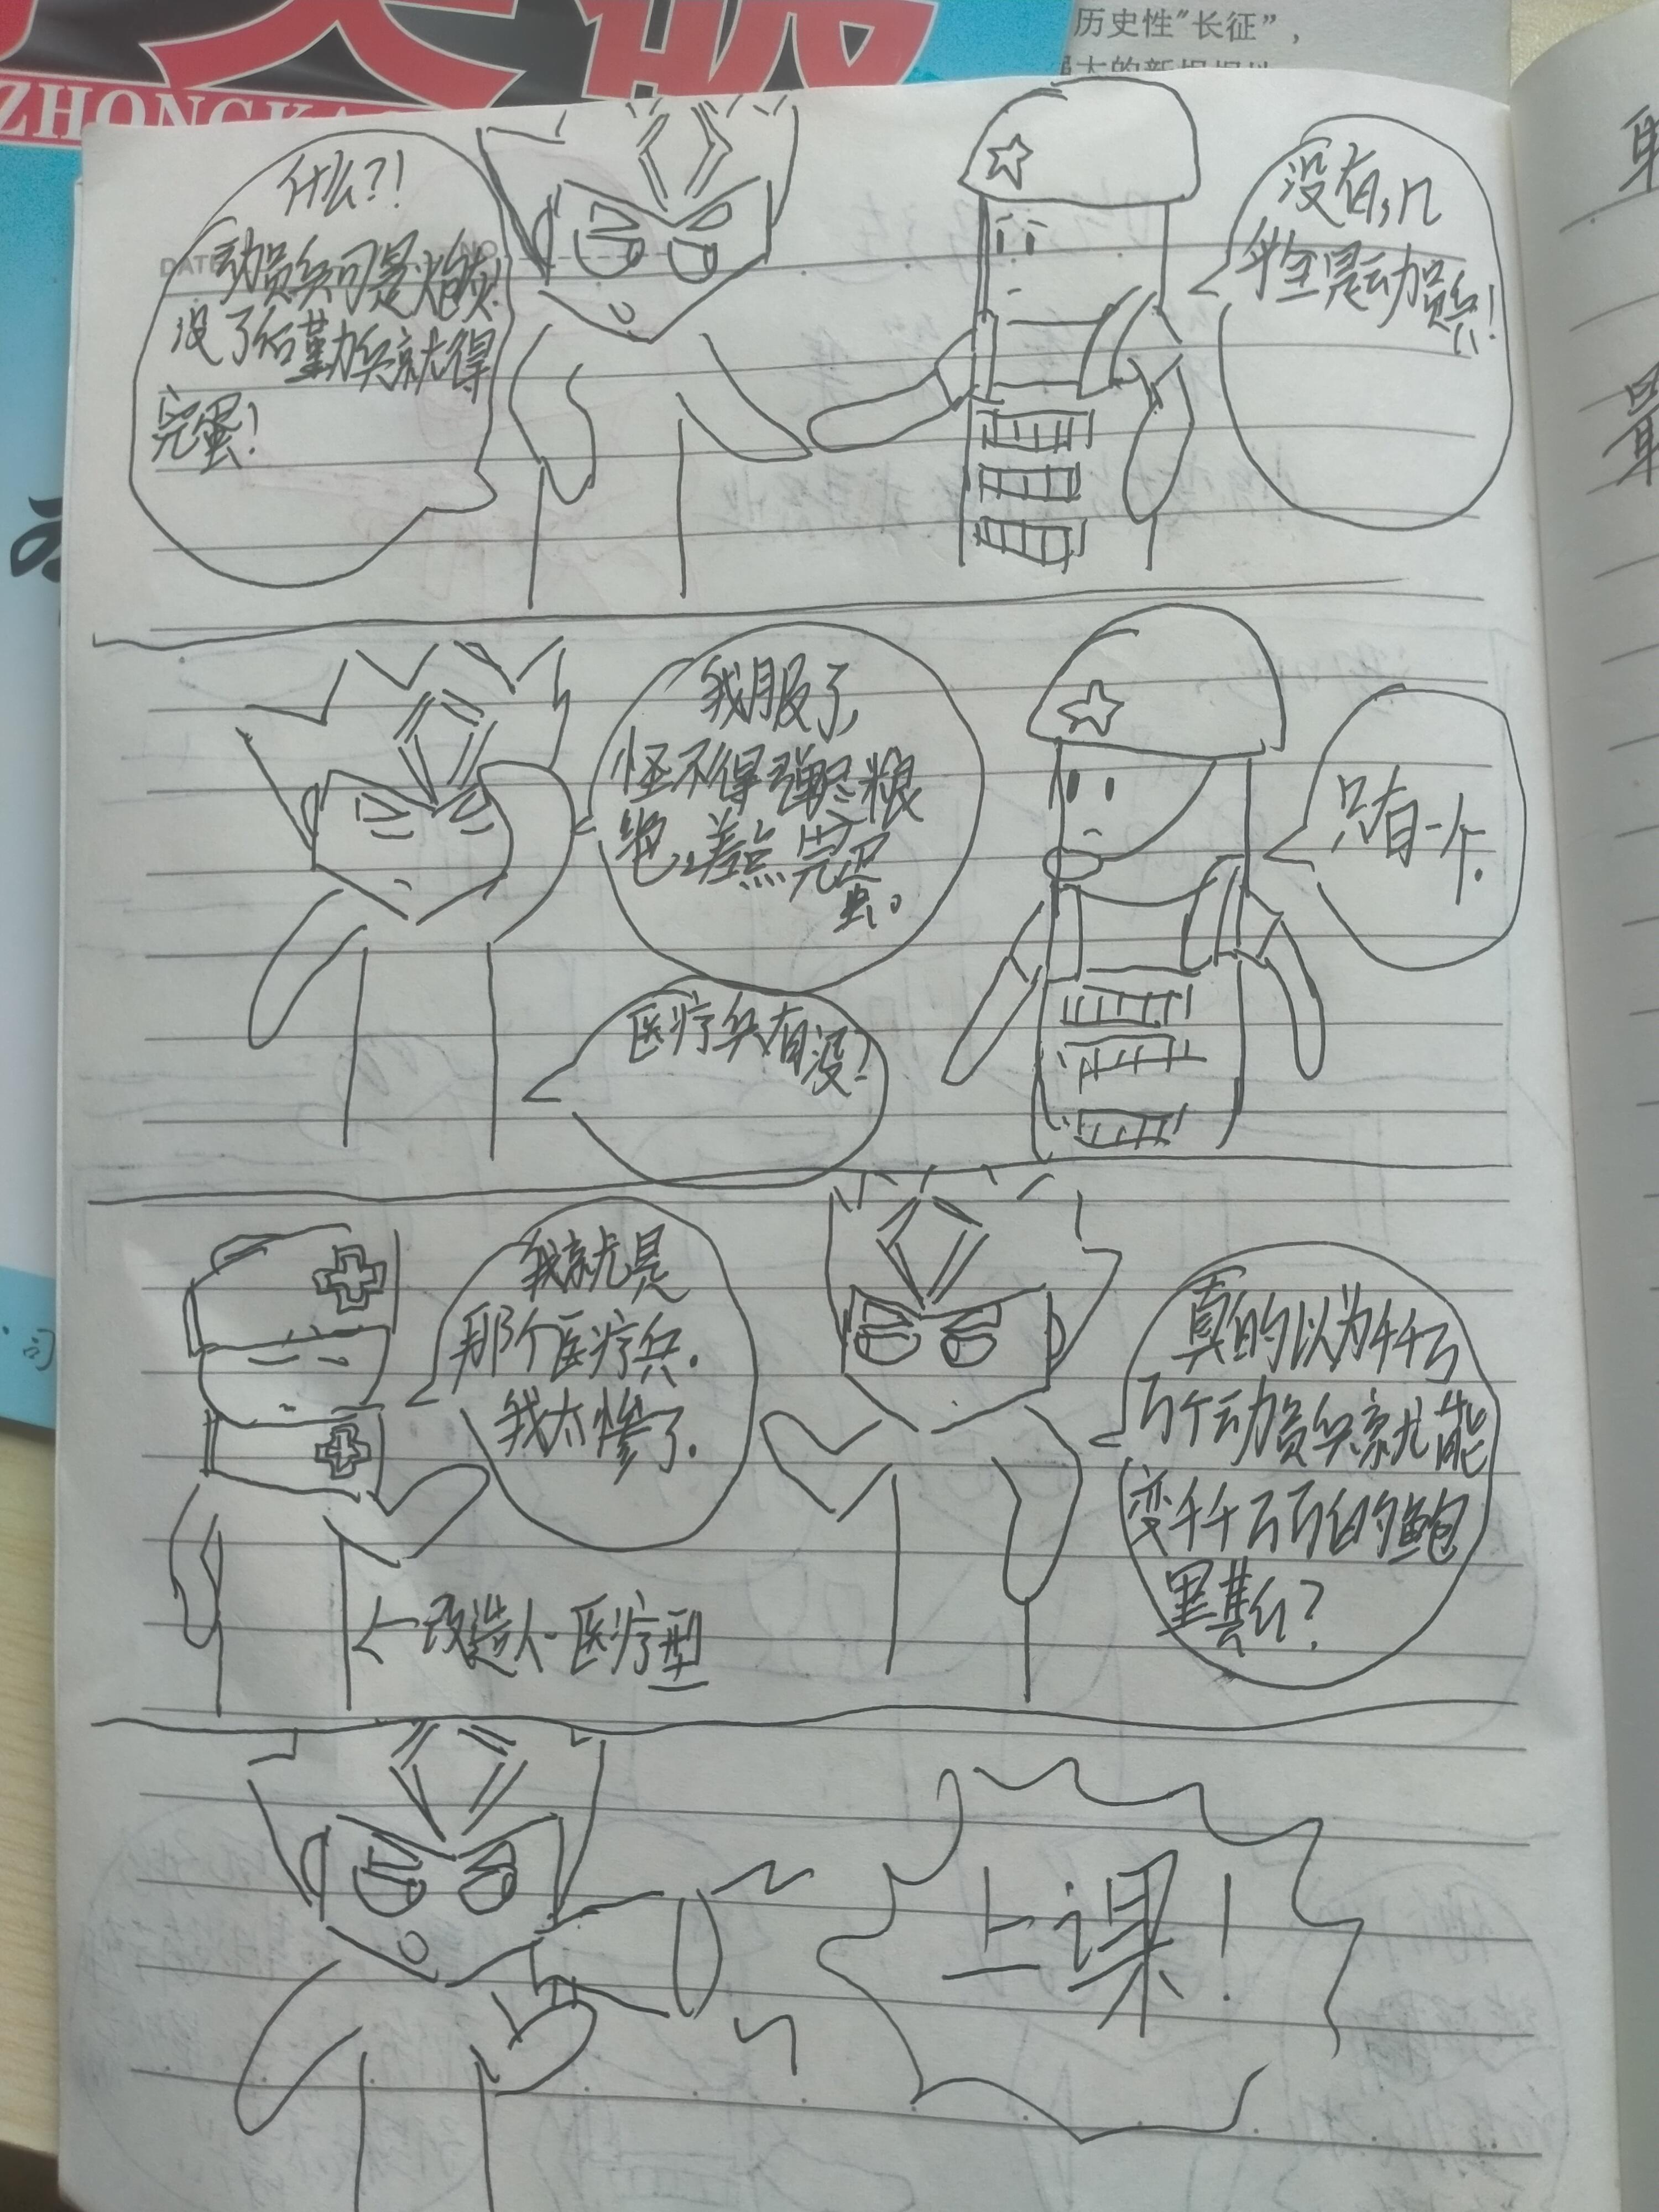 历史性“长征”，
ZHONGKA
什么?!
动员兵可是炮灰!
没了后勤兵就得
完蛋!
没有,几
乎全是动员兵!
我服了,
怪不得弹尽粮
绝,差点完蛋。
只有一个.
医疗兵有没!
我就是
那个医疗兵.
我太惨了.
←改造人-医疗型
真的以为千千万
万个动员兵就能
变千千万万的鲍
里斯?
上课!